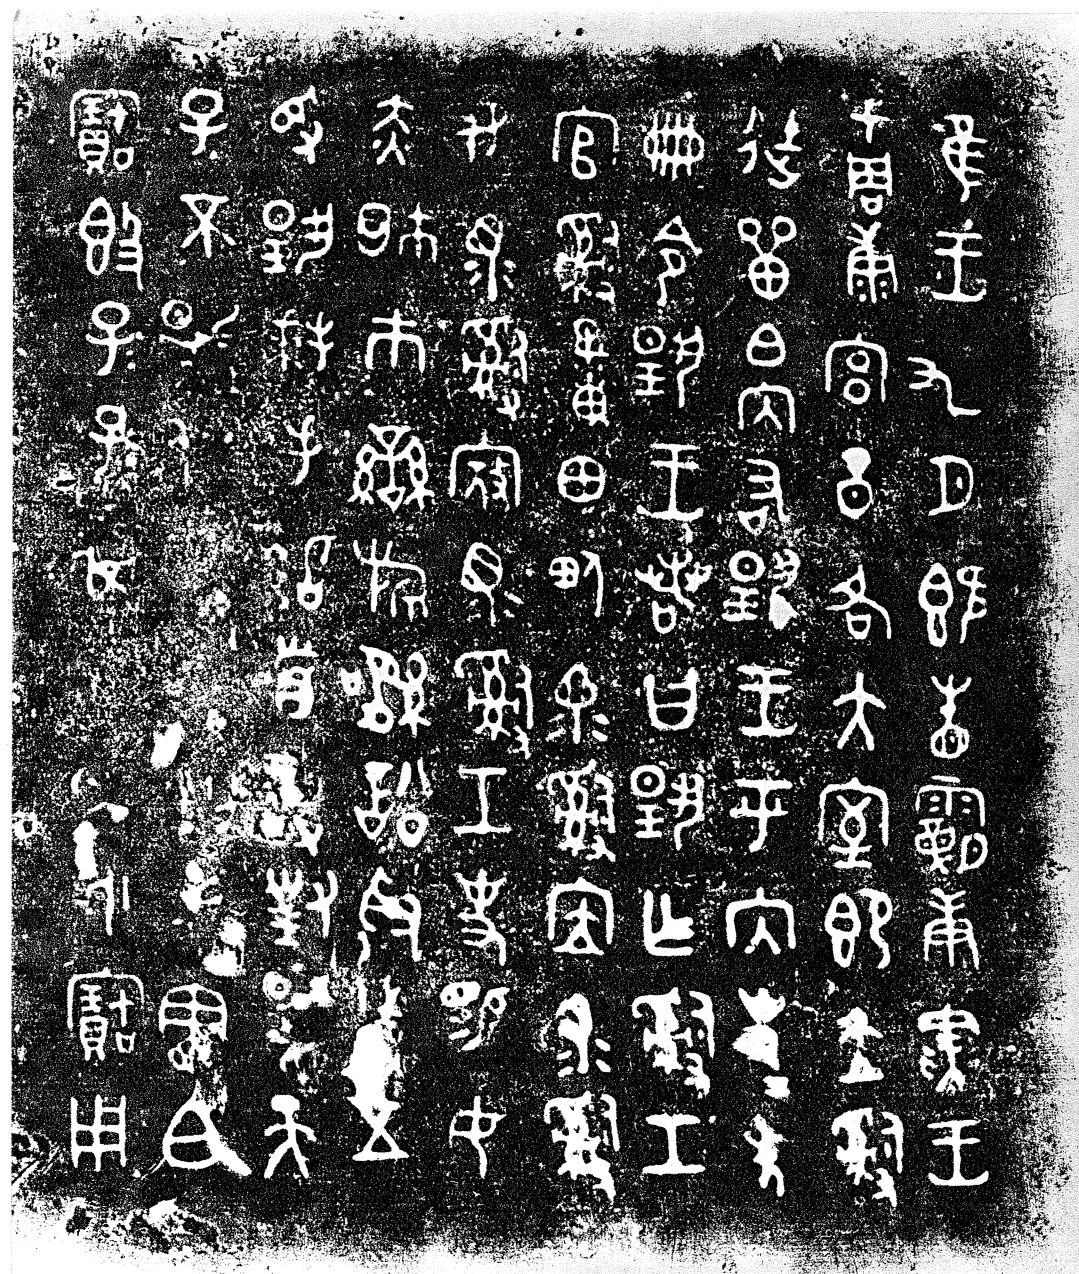 隹王九月既眚霸庚寅王
才周康宮各大室即立𤔲
徒單白內右揚王乎內史史𠦪
冊令揚王若曰揚乍𤔲工
官𤔲量田甸眔𤔲㕇眔𤔲
芻眔𤔲寇眔𤔲工司易女
赤市䜌旂訊訟取五
寽揚拜手𩒨首敢對揚天
子不顯休余用乍朕剌考憲白
寶𣪘子子孫孫其萬年永寶用